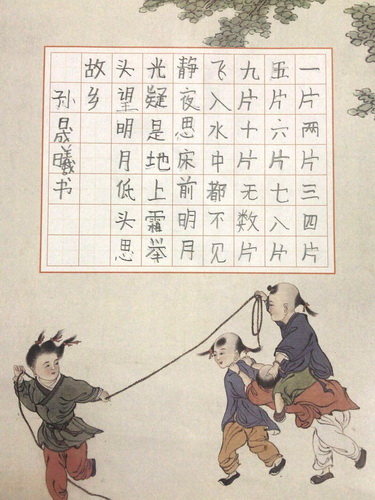 一片两片三四片
五片六片七八片
九片十片无数片
飞入水中都不见
静夜思床前明月
光疑是地上霜举
头望明月低头思
故乡
孙晟曦书